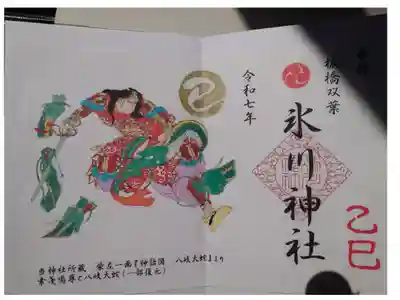 板橋双葉
氷川神社
乙巳
令和七年
巳
当神社所蔵 柴左一画『神話図 八岐大蛇』より
素戔嗚尊と八岐大蛇(一部復元)